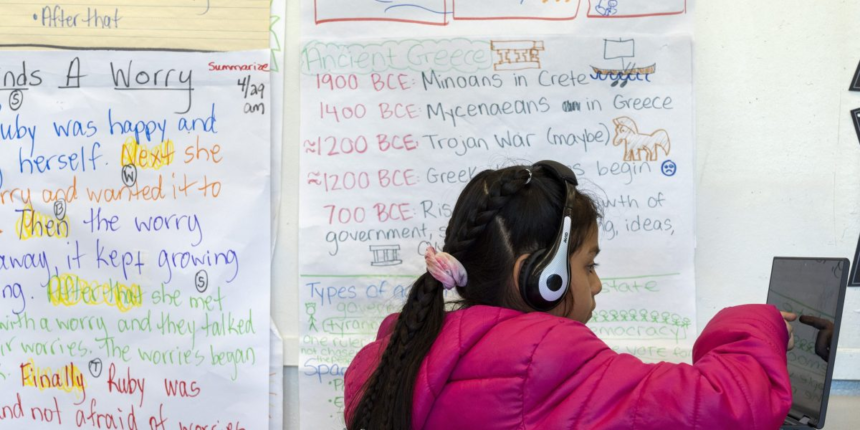 • After that
nds A Worry
Summarize
4/29
am
S
uby was happy and
herself. Next she
W
rry and wanted it to
B
Then the worry
away, it kept growing
S
ng. After that she met
with a worry and they talked
ir worries. The worries began
T
Finally Ruby was
nd not afraid of worries
Ancient Greece
1900 BCE: Minoans in Crete
1400 BCE: Mycenaeans in Greece
≈1200 BCE: Trojan War (maybe)
≈1200 BCE: Greek s begin
700 BCE: Ris wth of
government, g, ideas,
Types of state
tyrann mocracy